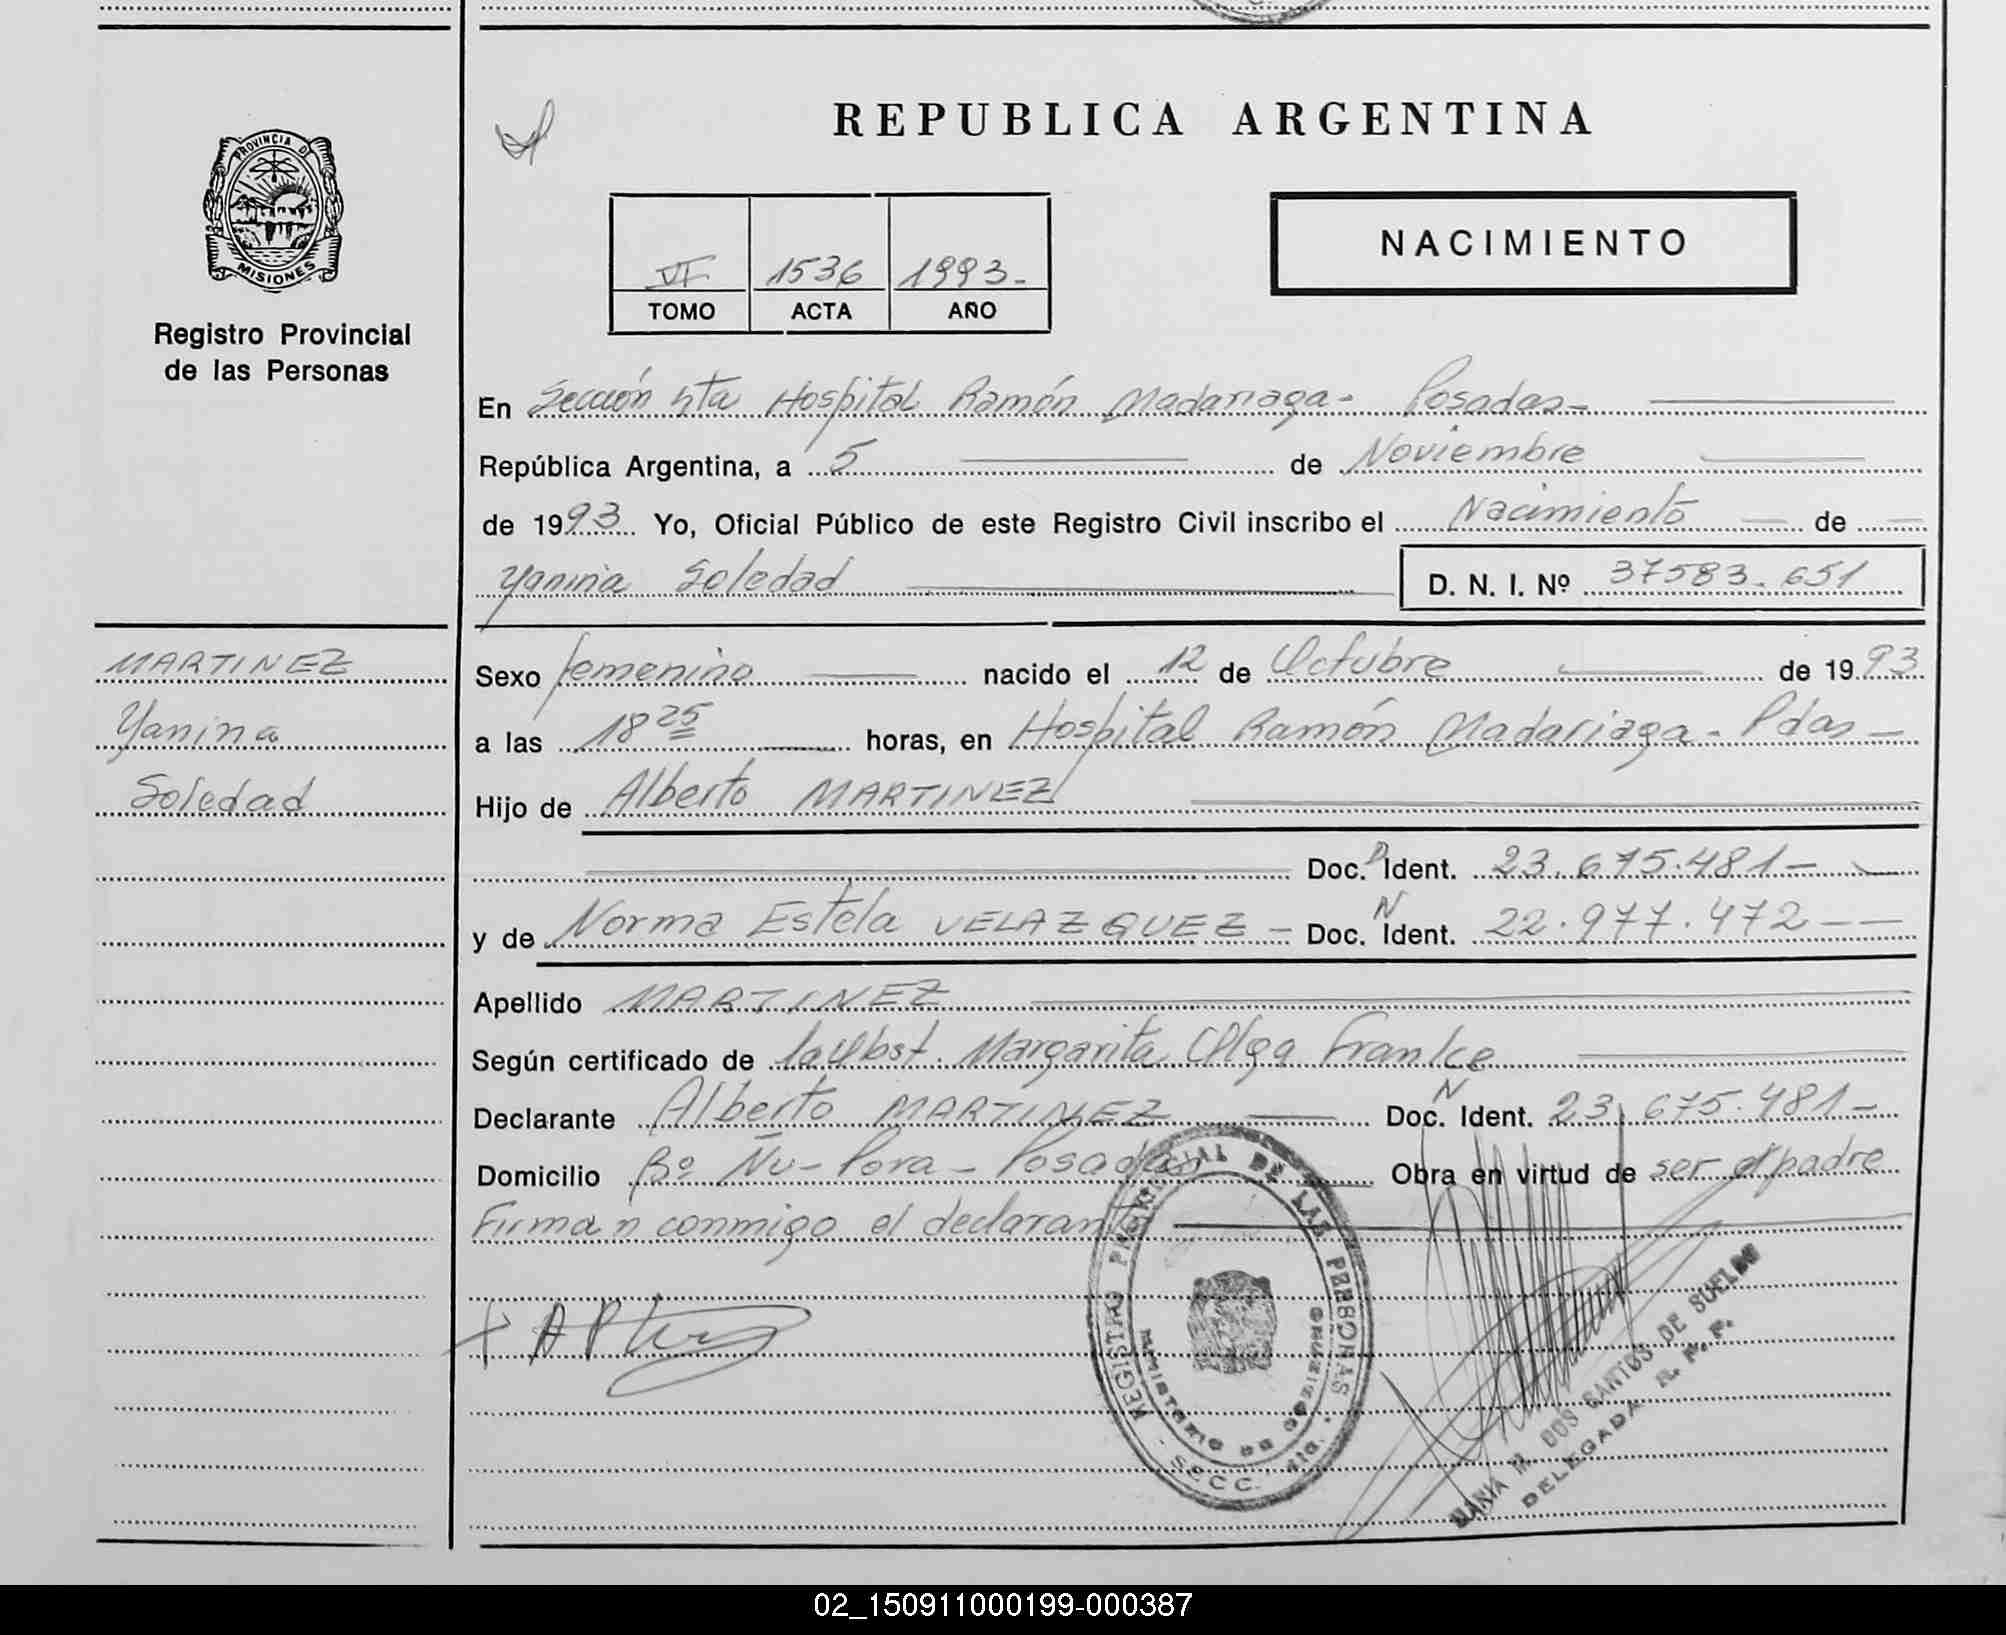 REPUBLICA ARGENTINA
PROVINCIA D
MISIONES
Registro Provincial
de las Personas
VI 1536 1993-
TOMO ACTA AÑO
NACIMIENTO
En Sección 5ta Hospital Ramón Madariaga- Posadas-
República Argentina, a 5 de Noviembre
de 1993 Yo, Oficial Público de este Registro Civil inscribo el Nacimiento de
Yanina Soledad D. N. I. Nº 37583.651
MARTINEZ
Yanina
Soledad
Sexo femenino nacido el 12 de Octubre de 1993
a las 18 25 horas, en Hospital Ramón Madariaga- Pdas-
Hijo de Alberto MARTINEZ
Doc. Ident. 23.675.481-
y de Norma Estela VELAZQUEZ - Doc. N Ident. 22.977.472--
Apellido MARTINEZ
Según certificado de la Obst. Margarita Olga Franke
Declarante Alberto MARTINEZ Doc. N Ident. 23.675.481-
Domicilio Bº Ñu-Pora- Posadas Obra en virtud de ser el padre
Firma n conmigo el declarante
REGISTRO PROVINCIAL DE LAS PERSONAS
MINISTERIO DE GOBIERNO
SECC.
DOS SANTOS DE SUELDO
DELEGADA R. P. P.
02_150911000199-000387